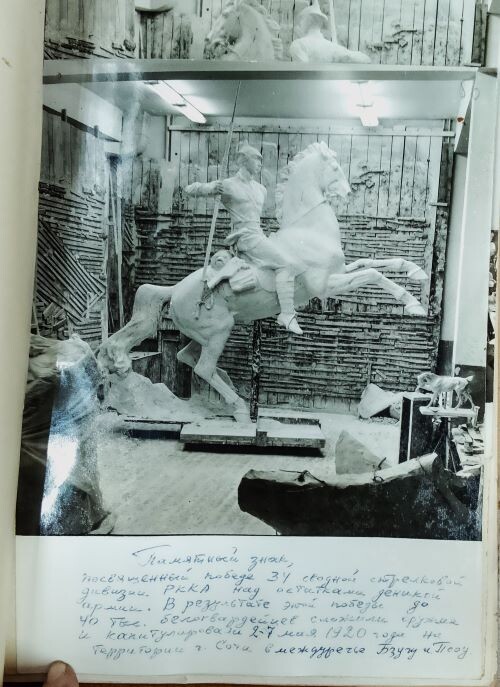 Памятный знак,
посвященный победе 34 сводной стрелковой
дивизии РККА над остатками деникин
армии. В результате этой победы до
40 тыс. белогвардейцев сложили оружие
и капитулировали 2-7 мая 1920 года на
территории г. Сочи в междуречье Бзугу и Псоу